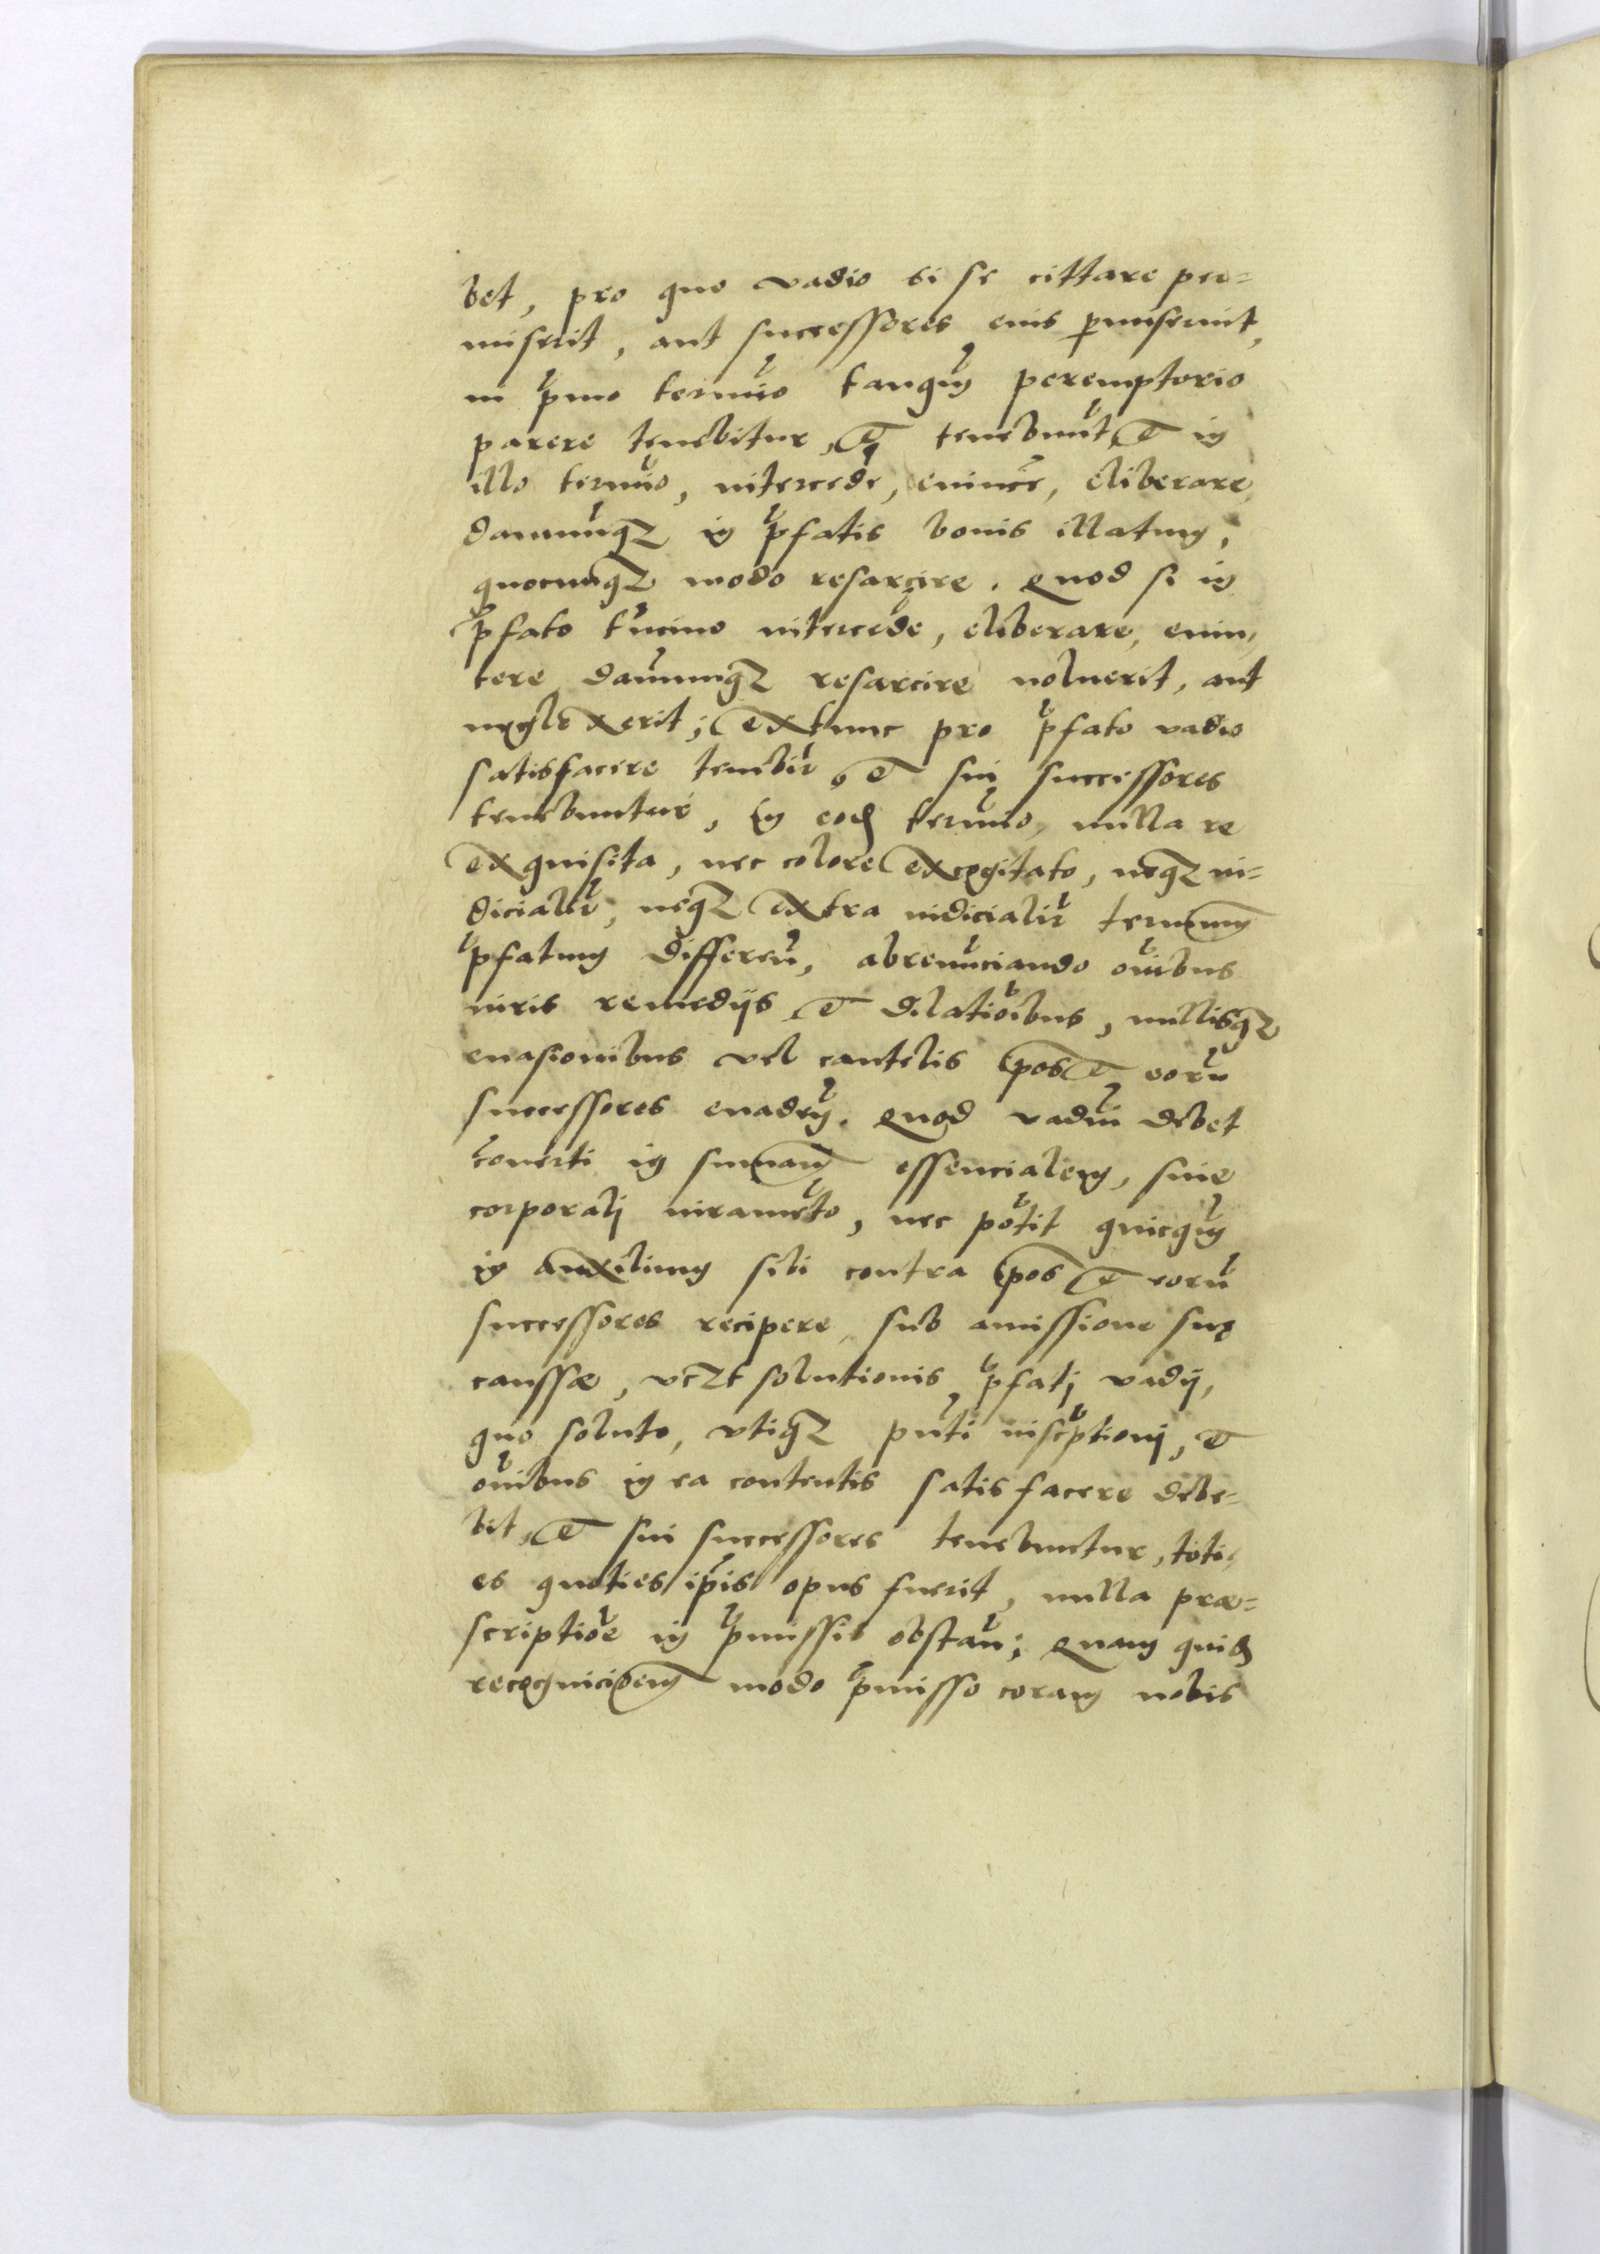 bet, pro quo vadio si se cittare per=
miserit, aut successores eius p̱miserint,
in p̃mo termĩo tanqũ peremptorio
parere tenebitur, et tenebuñt, et in
illo termĩo, intercede͛, euince͛, eliberare,
damñuqꝫ in p̃fatis bonis illatum,
quocunqꝫ modo resarcire. Quod si in
p̃fato t̃mino intercede͛, eliberare, euin,
cere dam̃numqꝫ resarcire noluerit, aut
neglexerit; extunc pro p̃fato vadio
satisfacere tenebit̃, et sui successores
tenebuntur, In eod̃ termĩo, nulla re
exquisita, nec colore excogitato, neqꝫ iu=
dicialit̃, neqꝫ extra iudicialit̃ terminum
p̃fatum differeñ, abrenũciando om̃ibus
iuris remedijs et dilatiõibus, nullisqꝫ
euasionibus vel cautelis ip̃os et eorũ
successores euadeñ. Quod vadiũ debet
cõuerti in summam essencialem, sine
corporali iuramẽto, nec põtit quicqũ
in auxilium sibi contra ip̃os et eorũ
successores recipere, sub amissione suę
caussæ, vcꝫt solutionis p̃fatj vadij,
quo soluto, vtiqꝫ p̃nti inscp̃tionj, et
om̃ibus in ea contentis satisfacere debe=
bit, et sui successores tenebuntur, toti,
es quoties ip̃is opus fuerit, nulla præ=
scriptiõe in p̃missis obstañ; Quam quid̃
recognicionem modo p̃misso coram nobis